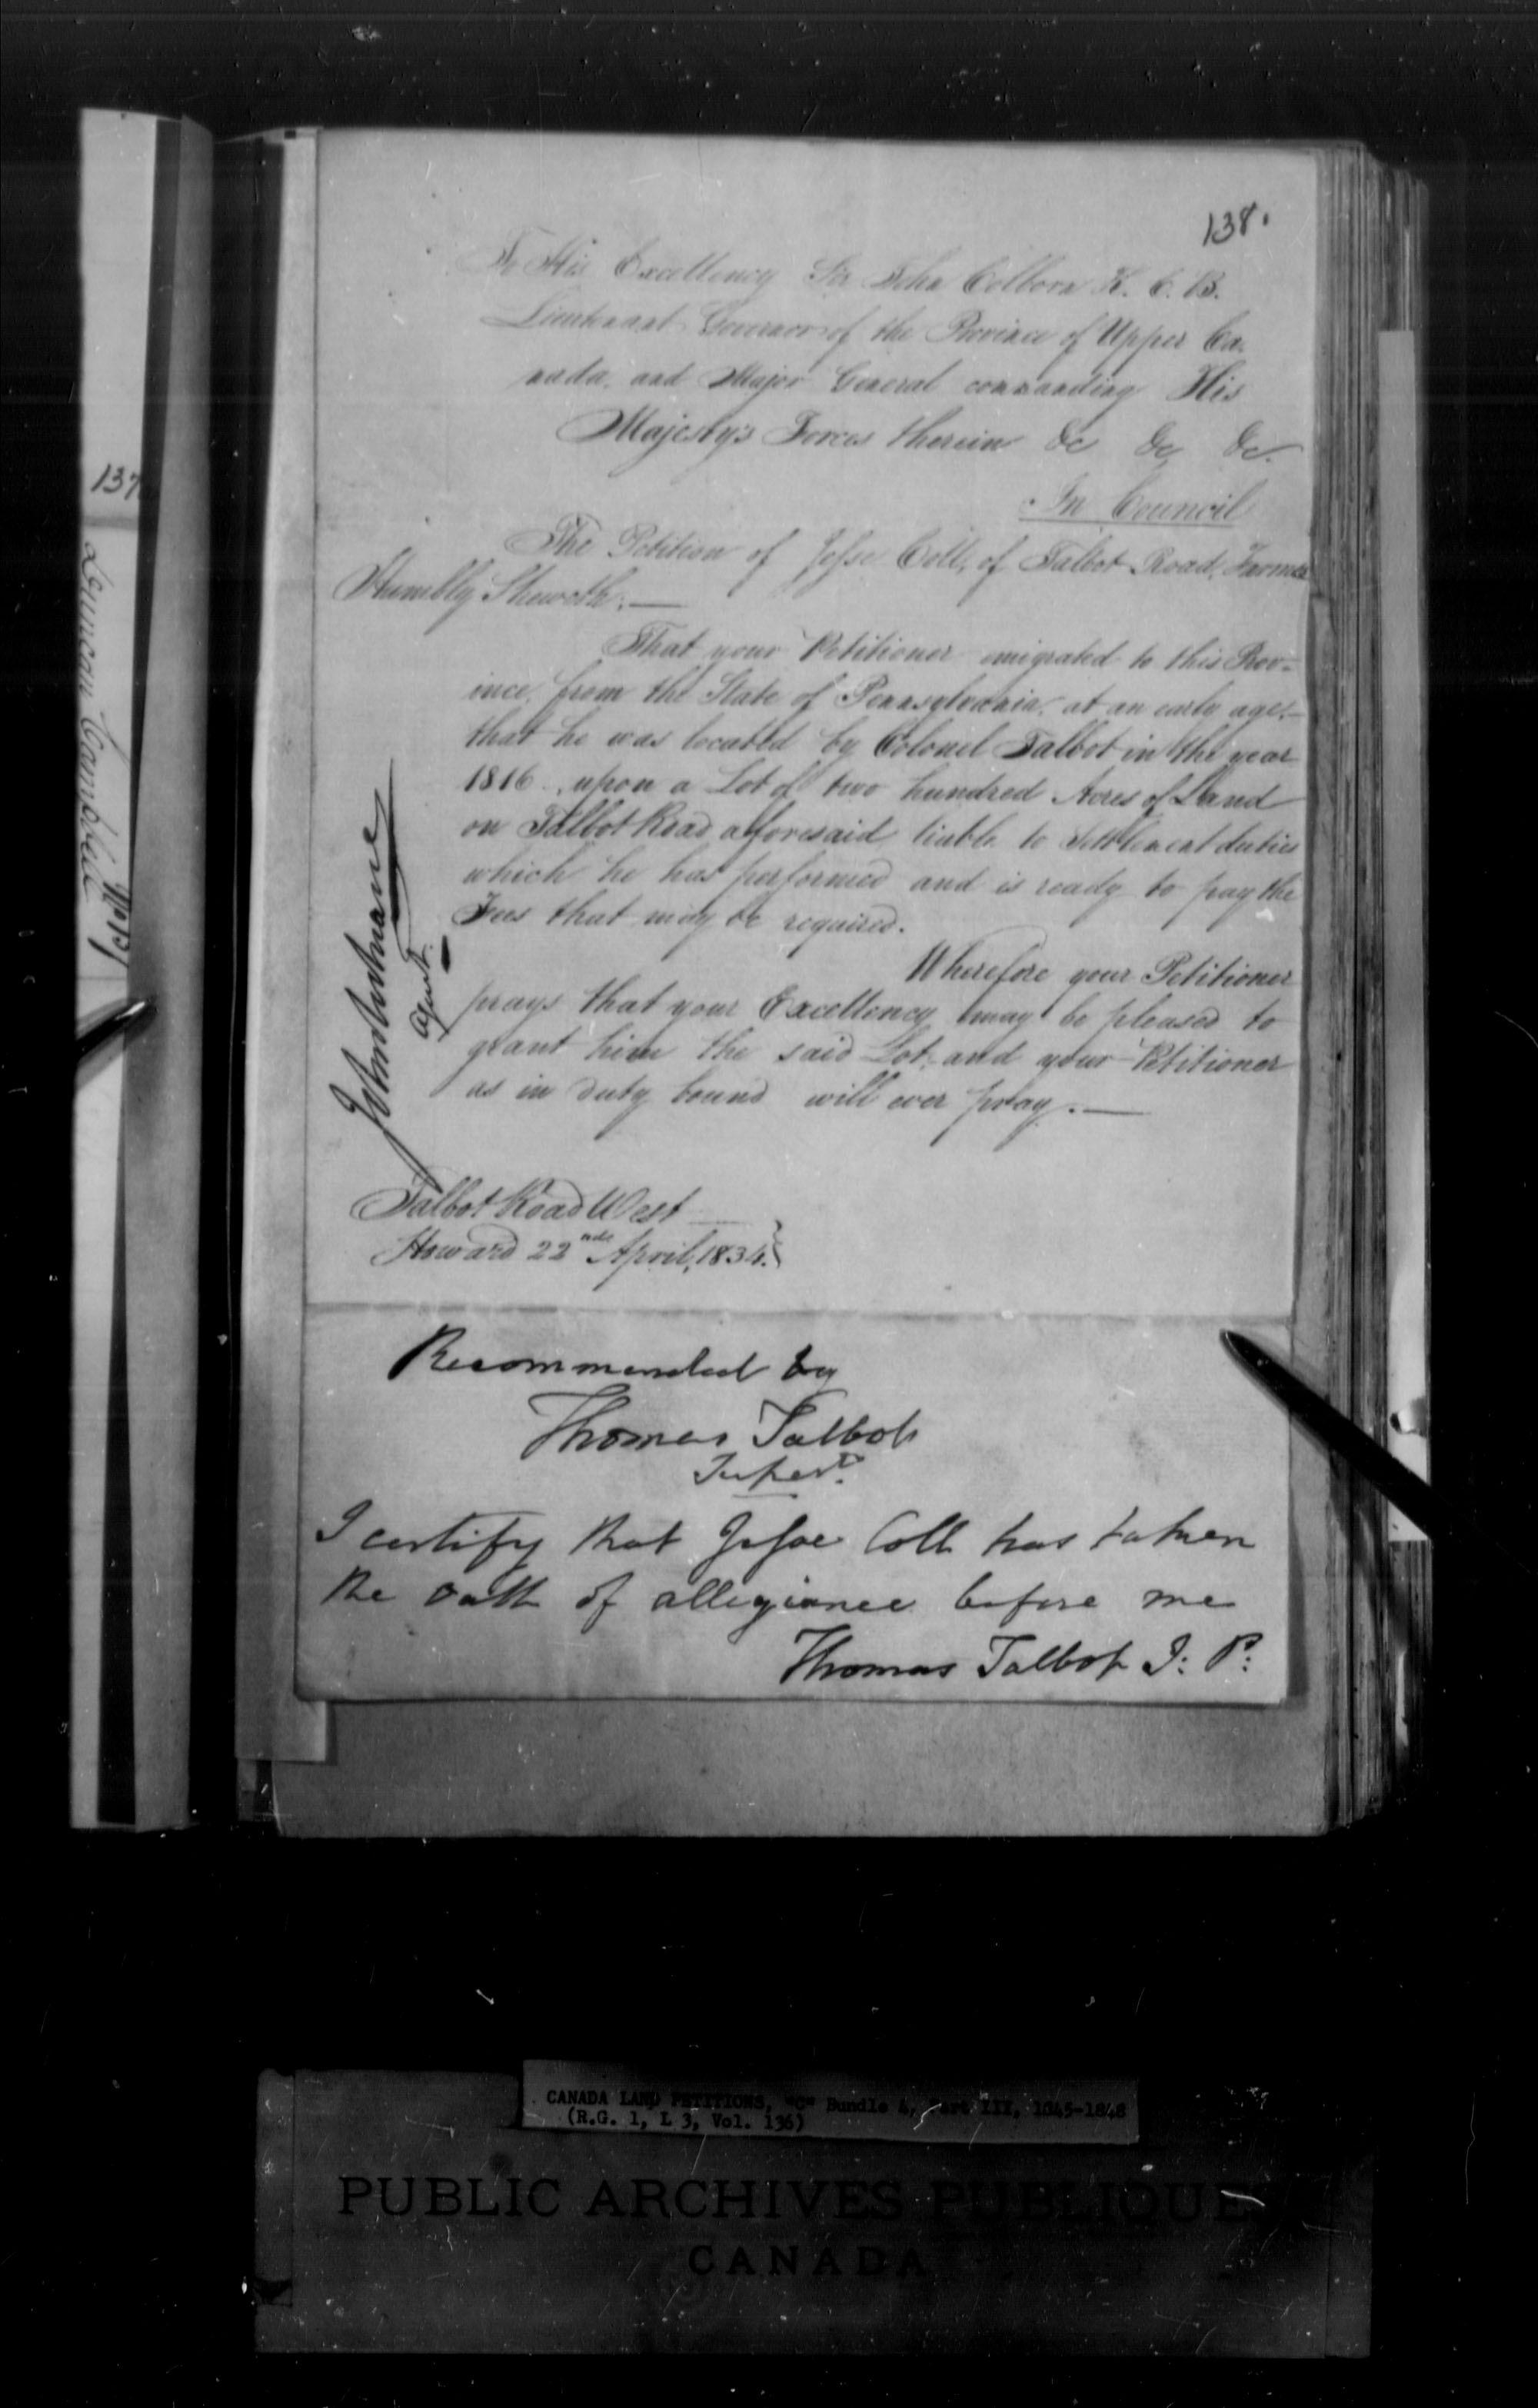 138.
To His Excellency Sir John Colborn K. C. B.
Lieutenant Governor of the Province of Upper Ca-
nada, and Major General commanding His
Majesty's Forces therein &c &c &c.
In Council
The Petition of Jesse Coll, of Talbot Road, Farmer
Humbly Sheweth;—
That your Petitioner emigrated to this Prov=
ince, from the State of Pennsylvania, at an early age,—
that he was located by Colonel Talbot in the year
1816, upon a Lot of two hundred Acres of Land
on Talbot Road aforesaid liable to Settlement duties
which he has performed and is ready to pay the
Fees that may be required.
Wherefore your Petitioner
prays that your Excellency may be pleased to
grant him the said Lot, and your Petitioner
as in duty bound will ever pray.—
agent
Talbot Road West
Howard 22nd April, 1834.
Recommended by
Thomas Talbot
Supert.
I certify that Jesse Coll has taken
the oath of allegiance before me
Thomas Talbot J: P:
137
Duncan Campbell
CANADA LAND PETITIONS, "C" Bundle 4, Part III, 1845-1848
(R.G. 1, L 3, Vol. 136)
PUBLIC ARCHIVES PUBLIQUES
CANADA